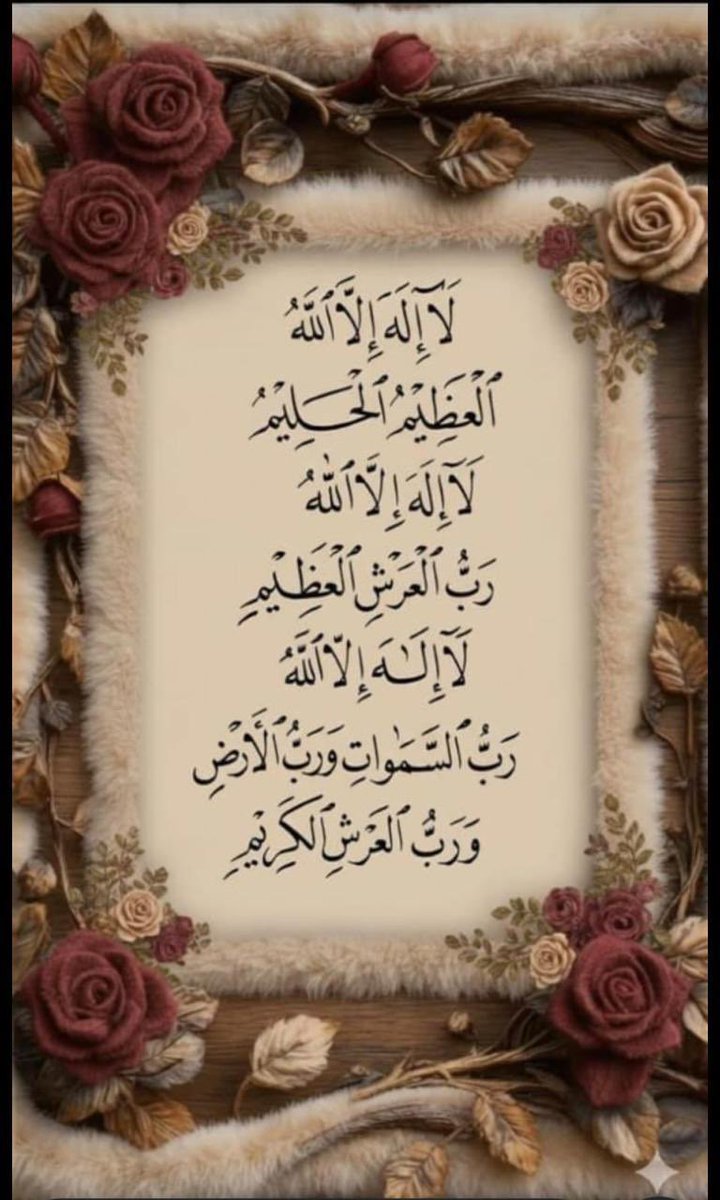 لَآ إِلَهَ إِلَّا ٱللَّهُ
ٱلْعَظِيْمُ ٱلْحَلِيْمُ
لَآ إِلَهَ إِلَّا ٱللّٰهُ
رَبُّ ٱلْعَرْشِ ٱلْعَظِيْمِ
لَآ إِلَـٰهَ إِلَّا ٱللَّهُ
رَبُّ ٱلسَّمَٰواتِ وَرَبُّ ٱلْأَرْضِ
وَرَبُّ ٱلعَرْشِ ٱلكَرِيْمِ